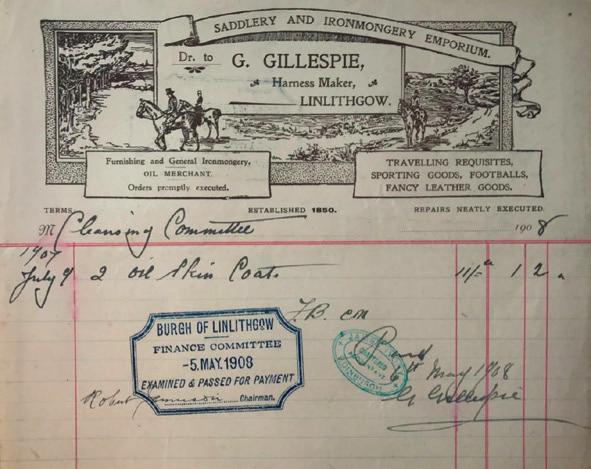 SADDLERY AND IRONMONGERY EMPORIUM.
Dr. to G. GILLESPIE,
Harness Maker,
LINLITHGOW.
Furnishing and General Ironmongery,
OIL MERCHANT.
Orders promptly executed.
TRAVELLING REQUISITES,
SPORTING GOODS, FOOTBALLS,
FANCY LEATHER GOODS.
TERMS ESTABLISHED 1850. REPAIRS NEATLY EXECUTED.
M Cleansing Committee 1908
1907
July 9 2 Oil Skin Coats 11/= 1 2
BURGH OF LINLITHGOW
FINANCE COMMITTEE
-5.MAY.1908
EXAMINED & PASSED FOR PAYMENT
Robert Chairman.
EDINBURGH
May 1908
G Gillespie